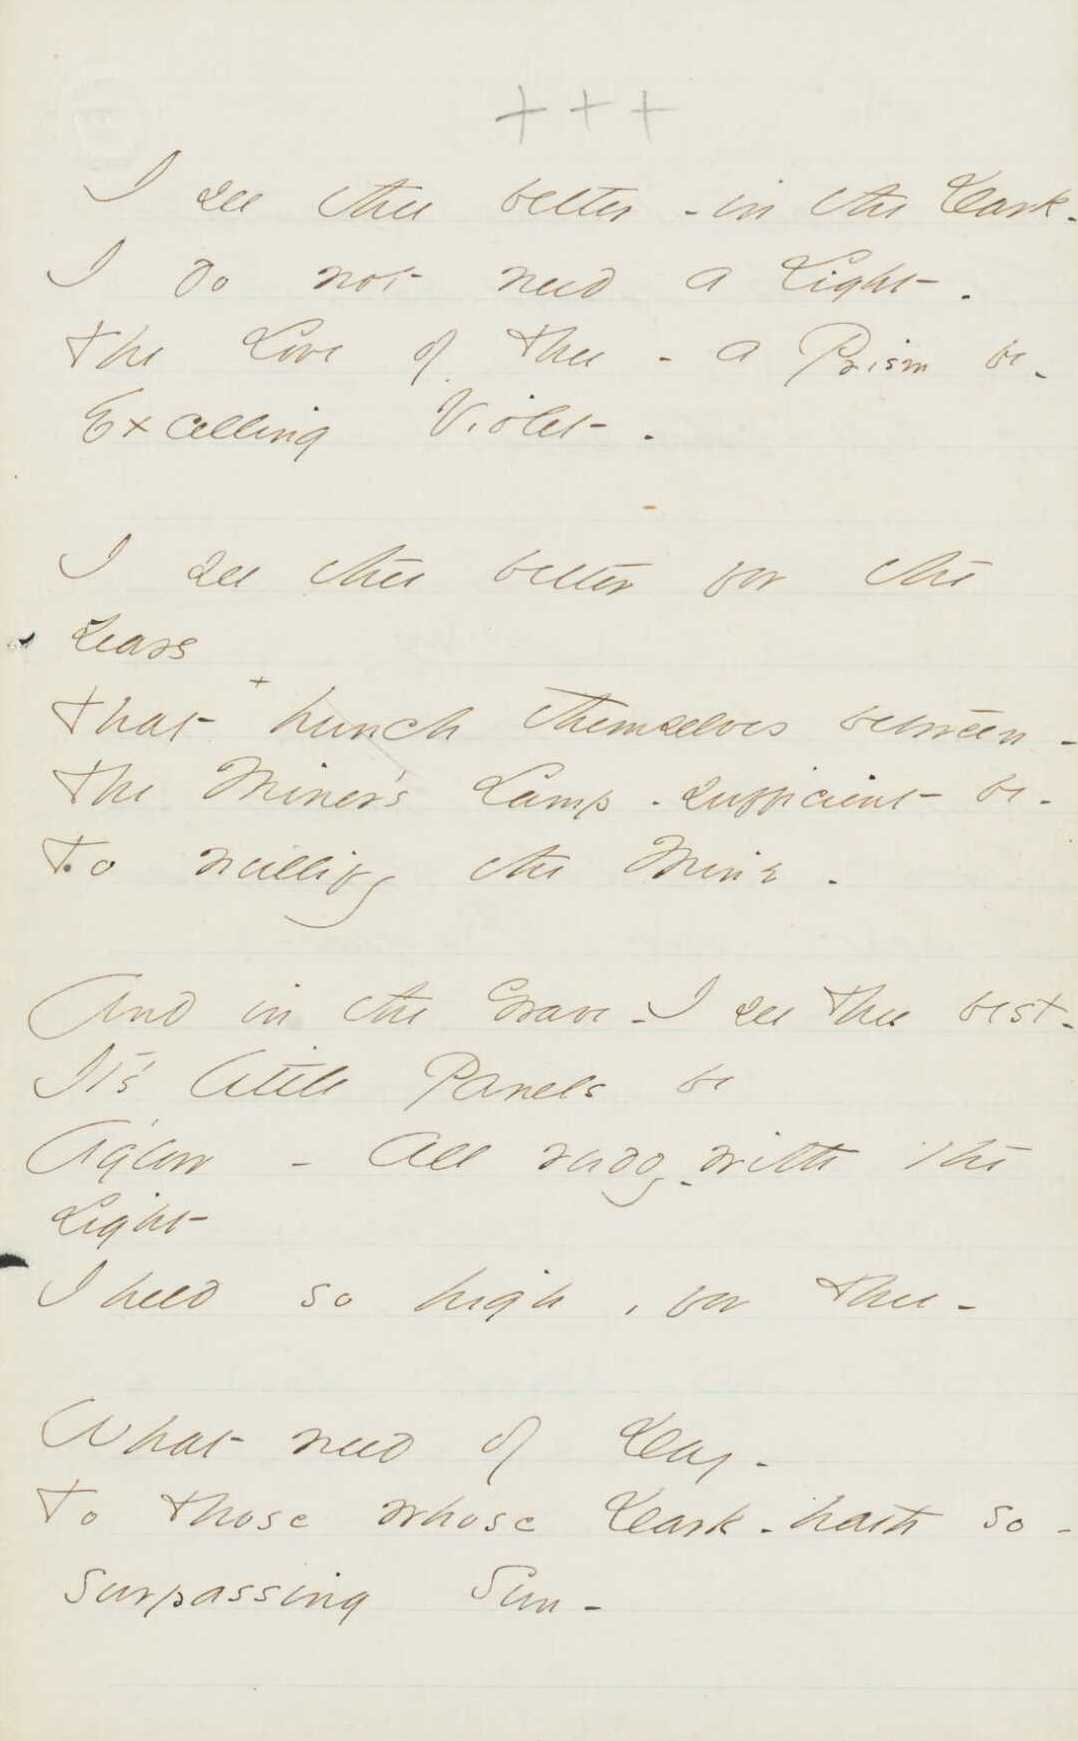 + + +
I see thee better - in the Dark -
I do not need a Light -
The Love of Thee - a Prism be -
Excelling Violet -
I see thee better for the
Years
That + hunch themselves between -
The Miner's Lamp - sufficient be -
To nullify the Mine -
And in the Grave - I see Thee best -
It's little Panels be
Aglow - All ruddy - with the
Light
I held so high, for Thee -
What need of Day -
To Those whose Dark - hath so -
surpassing Sun -